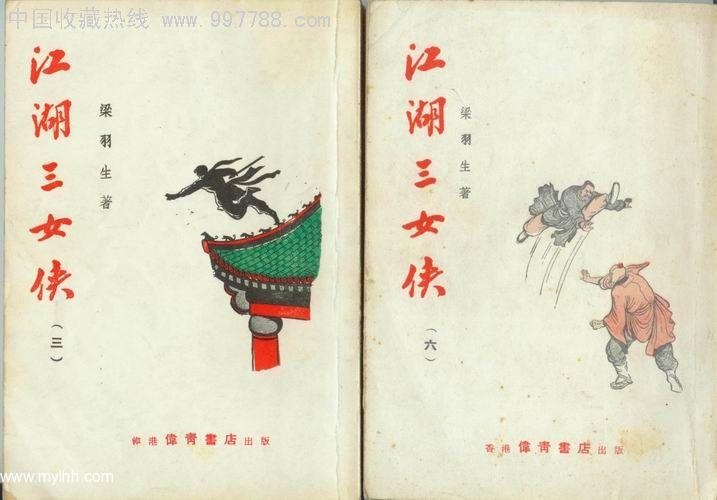 中国收藏热线 www.997788.com
江湖三女侠
梁羽生著
(三)
香港 偉青書店 出版
www.mylhh.com
江湖三女侠
梁羽生著
(六)
香港 偉青書店 出版